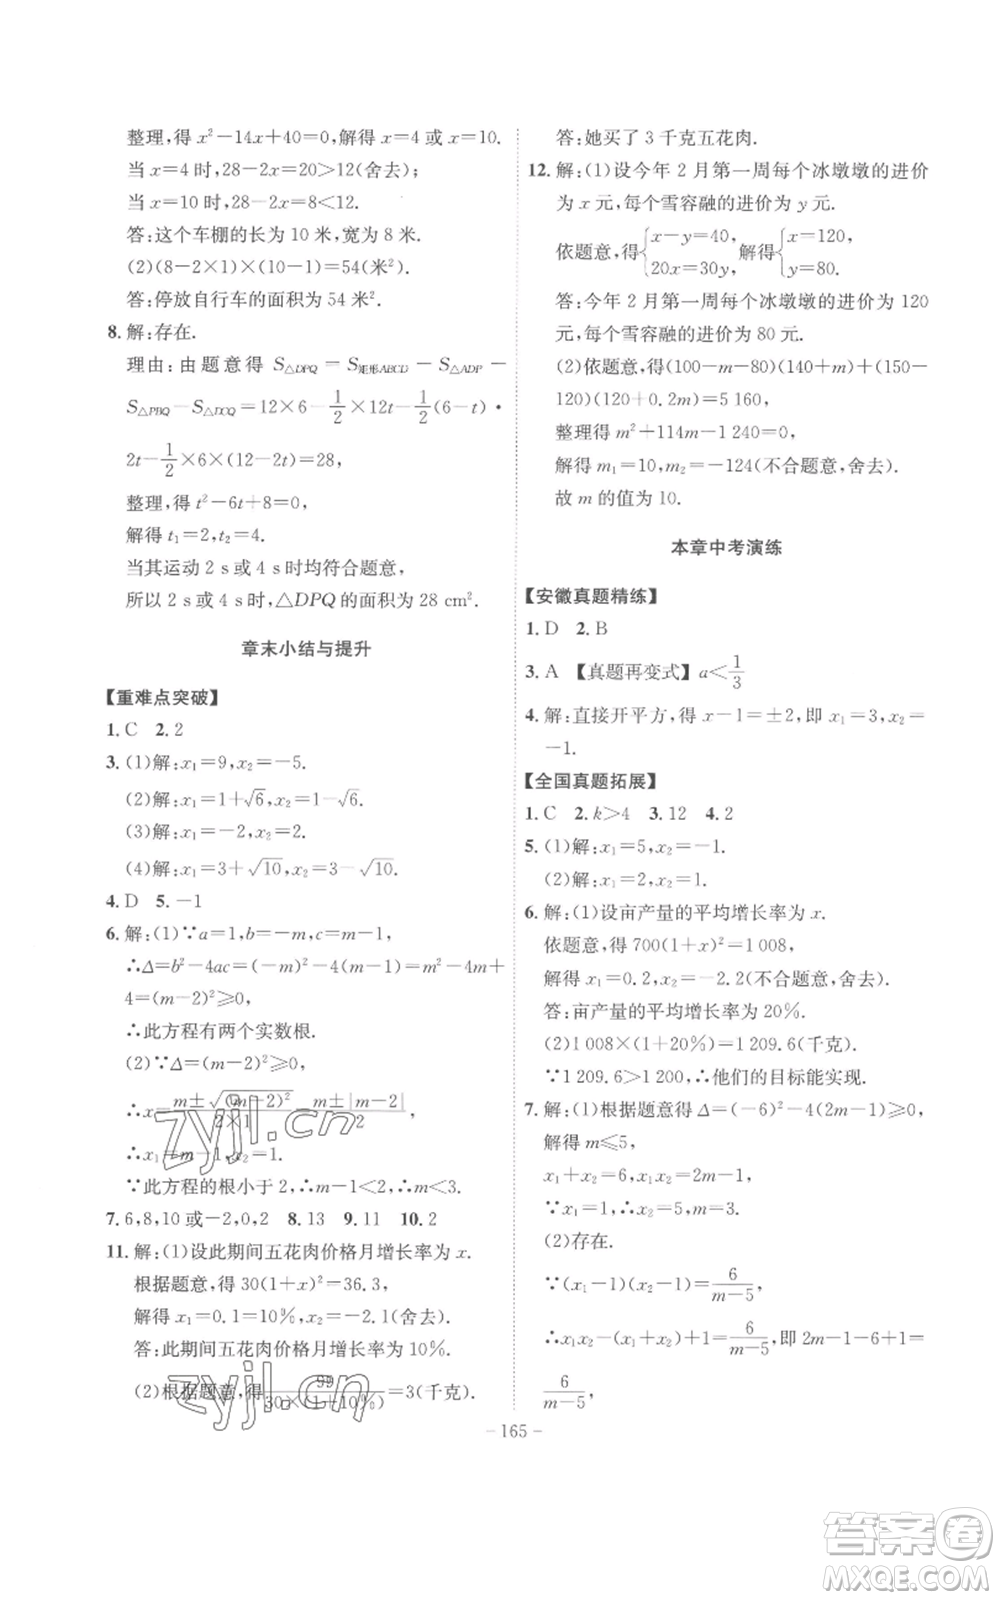 整理,得 x²－14x＋40＝0,解得 x＝4 或 x＝10.
当 x＝4 时,28－2x＝20＞12(舍去);
当 x＝10 时,28－2x＝8＜12.
答:这个车棚的长为 10 米,宽为 8 米.
(2)(8－2×1)×(10－1)＝54(米²).
答:停放自行车的面积为 54 米².
8. 解:存在.
理由:由题意得 S△DPQ ＝ S矩形ABCD － S△ADP －
S△PBQ－S△DCQ＝12×6－1/2×12t－1/2(6－t)·
2t－1/2×6×(12－2t)＝28,
整理,得 t²－6t＋8＝0,
解得 t₁＝2,t₂＝4.
当其运动 2 s 或 4 s 时均符合题意,
所以 2 s 或 4 s 时,△DPQ 的面积为 28 cm².
章末小结与提升
【重难点突破】
1. C 2. 2
3. (1)解:x₁＝9,x₂＝－5.
(2)解:x₁＝1＋√6,x₂＝1－√6.
(3)解:x₁＝－2,x₂＝2.
(4)解:x₁＝3＋√10,x₂＝3－√10.
4. D 5. －1
6. 解:(1)∵a＝1,b＝－m,c＝m－1,
∴Δ＝b²－4ac＝(－m)²－4(m－1)＝m²－4m＋
4＝(m－2)²≥0,
∴此方程有两个实数根.
(2)∵Δ＝(m－2)²≥0,
∴x＝(m±√(m－2)²)/(2×1)＝(m±|m－2|)/2,
∴x₁＝m－1,x₂＝1.
∵此方程的根小于 2,∴m－1＜2,∴m＜3.
7. 6,8,10 或－2,0,2 8. 13 9. 11 10. 2
11. 解:(1)设此期间五花肉价格月增长率为 x.
根据题意,得 30(1＋x)²＝36.3,
解得 x₁＝0.1＝10%,x₂＝－2.1(舍去).
答:此期间五花肉价格月增长率为 10%.
(2)根据题意,得 99/(30×(1＋10%))＝3(千克).
答:她买了 3 千克五花肉.
12. 解:(1)设今年 2 月第一周每个冰墩墩的进价
为 x 元,每个雪容融的进价为 y 元.
依题意,得{x－y＝40, 20x＝30y, 解得{x＝120, y＝80.
答:今年 2 月第一周每个冰墩墩的进价为 120
元,每个雪容融的进价为 80 元.
(2)依题意,得(100－m－80)(140＋m)＋(150－
120)(120＋0.2m)＝5 160,
整理得 m²＋114m－1 240＝0,
解得 m₁＝10,m₂＝－124(不合题意,舍去).
故 m 的值为 10.
本章中考演练
【安徽真题精练】
1. D 2. B
3. A 【真题再变式】a＜1/3
4. 解:直接开平方,得 x－1＝±2,即 x₁＝3,x₂＝
－1.
【全国真题拓展】
1. C 2. k＞4 3. 12 4. 2
5. (1)解:x₁＝5,x₂＝－1.
(2)解:x₁＝2,x₂＝1.
6. 解:(1)设亩产量的平均增长率为 x.
依题意,得 700(1＋x)²＝1 008,
解得 x₁＝0.2,x₂＝－2.2(不合题意,舍去).
答:亩产量的平均增长率为 20%.
(2)1 008×(1＋20%)＝1 209.6(千克).
∵1 209.6＞1 200,∴他们的目标能实现.
7. 解:(1)根据题意得 Δ＝(－6)²－4(2m－1)≥0,
解得 m≤5,
x₁＋x₂＝6,x₁x₂＝2m－1,
∵x₁＝1,∴x₂＝5,m＝3.
(2)存在.
∵(x₁－1)(x₂－1)＝6/(m－5),
∴x₁x₂－(x₁＋x₂)＋1＝6/(m－5),即 2m－1－6＋1＝
6/(m－5),
– 165 –
zyjl.cn
zyjl.cn
答案卷
MXQE.COM